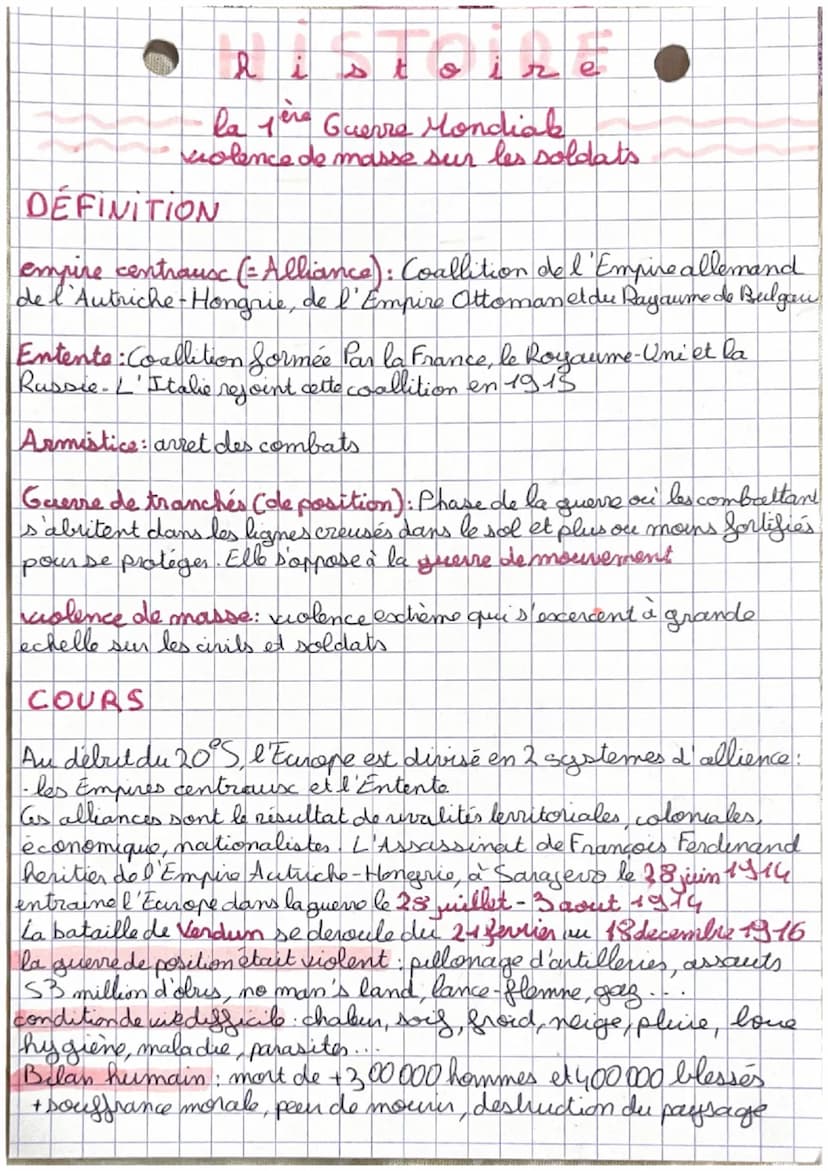 HISTOIRE
histoire
la 1ère Guerre Mondiale
violence de masse sur les soldats
DÉFINITION
empire centraux (= Alliance) : Coallition de l'Empire allemand
de l'Autriche-Hongrie, de l'Empire Ottoman et du Royaume de Bulgari
Entente : Coallition formée Par la France, le Royaume-Uni et la
Russie. L'Italie rejoint cette coallition en 1915
Armistice : arret des combats
Guerre de tranchés (de position) : Phase de la guerre où les combattant
s'abritent dans les lignes creusés dans le sol et plus ou moins fortifiés
pour se protéger. Elle s'oppose à la guerre de mouvement
violence de masse : violence extrème qui s'excercent à grande
echelle sur les civils et soldats
COURS
Au début du 20°S, l'Europe est divisé en 2 systemes d'allience :
- les Empires centraux et l'Entente
Ces alliances sont le résultat de rivalités territoriales, coloniales,
économique, nationalistes. L'Assassinat de François Ferdinand
heritier de l'Empire Autriche-Hongrie, à Sarajevo le 28 juin 1914
entraine l'Europe dans la guerre le 28 juillet - 3 aout 1914
La bataille de Verdun se deroule du 21 février au 18 decembre 1916
la guerre de position était violent : pillonage d'artilleries, assauts
53 million d'obus, no man's land, lance-flemne, gaz...
condition de vie difficile : chaleur, soif, froid, neige, pluie, boue
hygiène, maladie, parasites...
Bilan humain : mort de +300 000 hommes et 400 000 blessés
+ souffrance morale, peur de mourir, destruction du paysage